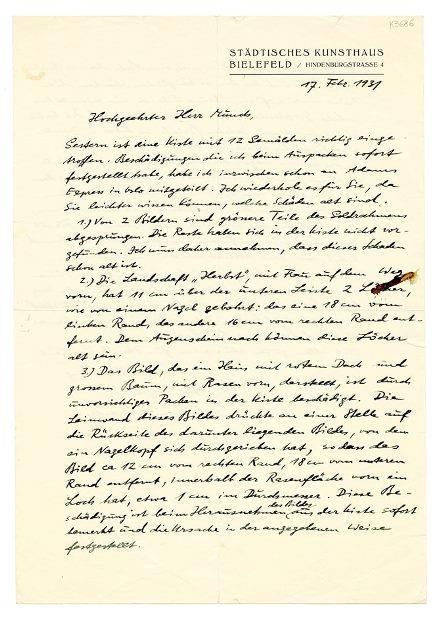 K3686
STÄDTISCHES KUNSTHAUS
BIELEFELD / HINDENBURGSTRASSE 4
17. Febr. 1931
Hochgeehrter Herr Munch,
Gestern ist eine Kiste mit 12 Gemälden richtig einge-
troffen. Beschädigungen die ich beim Auspacken sofort
festgestellt habe, habe ich inzwischen schon an Adams
Express in Oslo mitgeteilt. Ich wiederhole es für Sie, da
Sie leichter wissen können, welche Schäden alt sind.
1.) Von 2 Bildern sind grössere Teile des Goldrahmens
abgesprungen. Die Reste haben sich in der Kiste nicht vor-
gefunden. Ich muss daher annehmen, dass dieser Schaden
schon alt ist.
2.) Die Landschaft "Herbst", mit Frau auf dem Weg
vorn, hat 11 cm über der unteren Leiste 2 Löcher,
wie von einem Nagel gebohrt: das eine 18 cm vom
linken Rand, das andere 16 cm vom rechten Rand ent-
fernt. Dem Augenschein nach können diese Löcher
alt sein.
3.) Das Bild, das ein Haus mit rotem Dach und
grossem Baum, mit Rasen vorn, darstellt, ist durch
unvorsichtiges Packen in der Kiste beschädigt. Die
Leinwand dieses Bildes drückte an einer Stelle auf
die Rückseite des darunter liegenden Bildes, von dem
ein Nagelkopf sich durchgerieben hat, so dass das
Bild ca 12 cm vom rechten Rand, 18 cm vom unteren
Rand entfernt, innerhalb der Rasenfläche vorn ein
Loch hat, etwa 1 cm im Durchmesser. Diese Be-
schädigung ist beim Herausnehmen des Bildes aus der Kiste sofort
bemerkt und die Ursache in der angegebenen Weise
festgestellt.